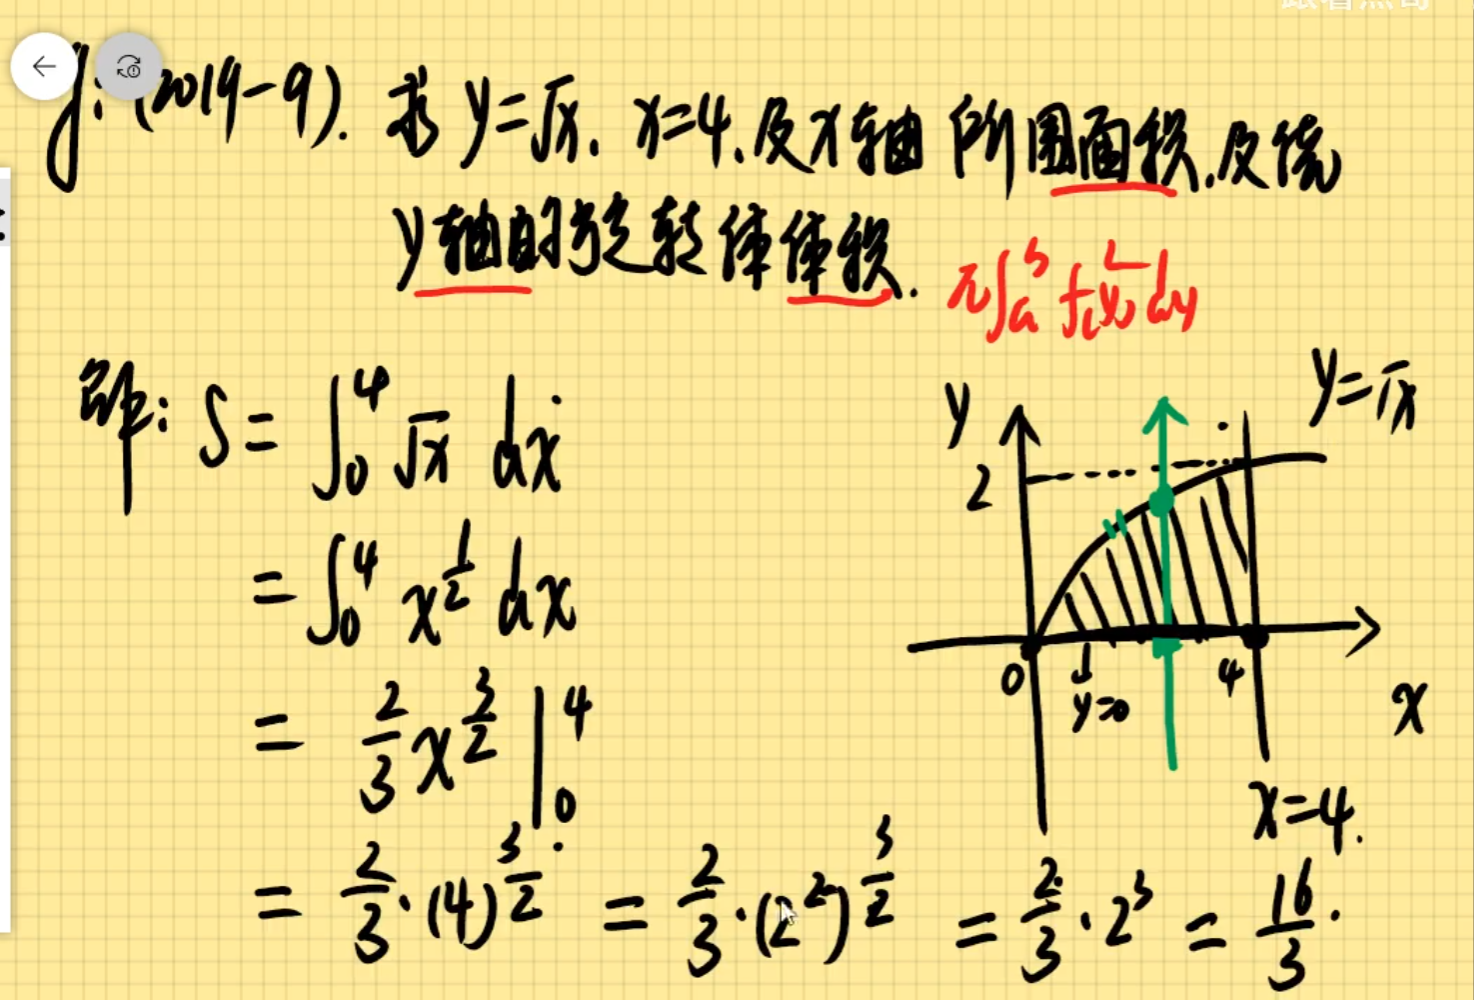 例:(2019-9). 求 y=√x. x=4.及x轴 所围面积.及绕
y轴的旋转体体积.
π∫ₐᵇ f²(y) dy
解: S = ∫₀⁴ √x dx
= ∫₀⁴ x^{1/2} dx
= 2/3 x^{3/2} |₀⁴
= 2/3 · (4)^{3/2} = 2/3 · (2²)^{3/2} = 2/3 · 2³ = 16/3.
y
y=√x
2
0
y=0
4
x
x=4.